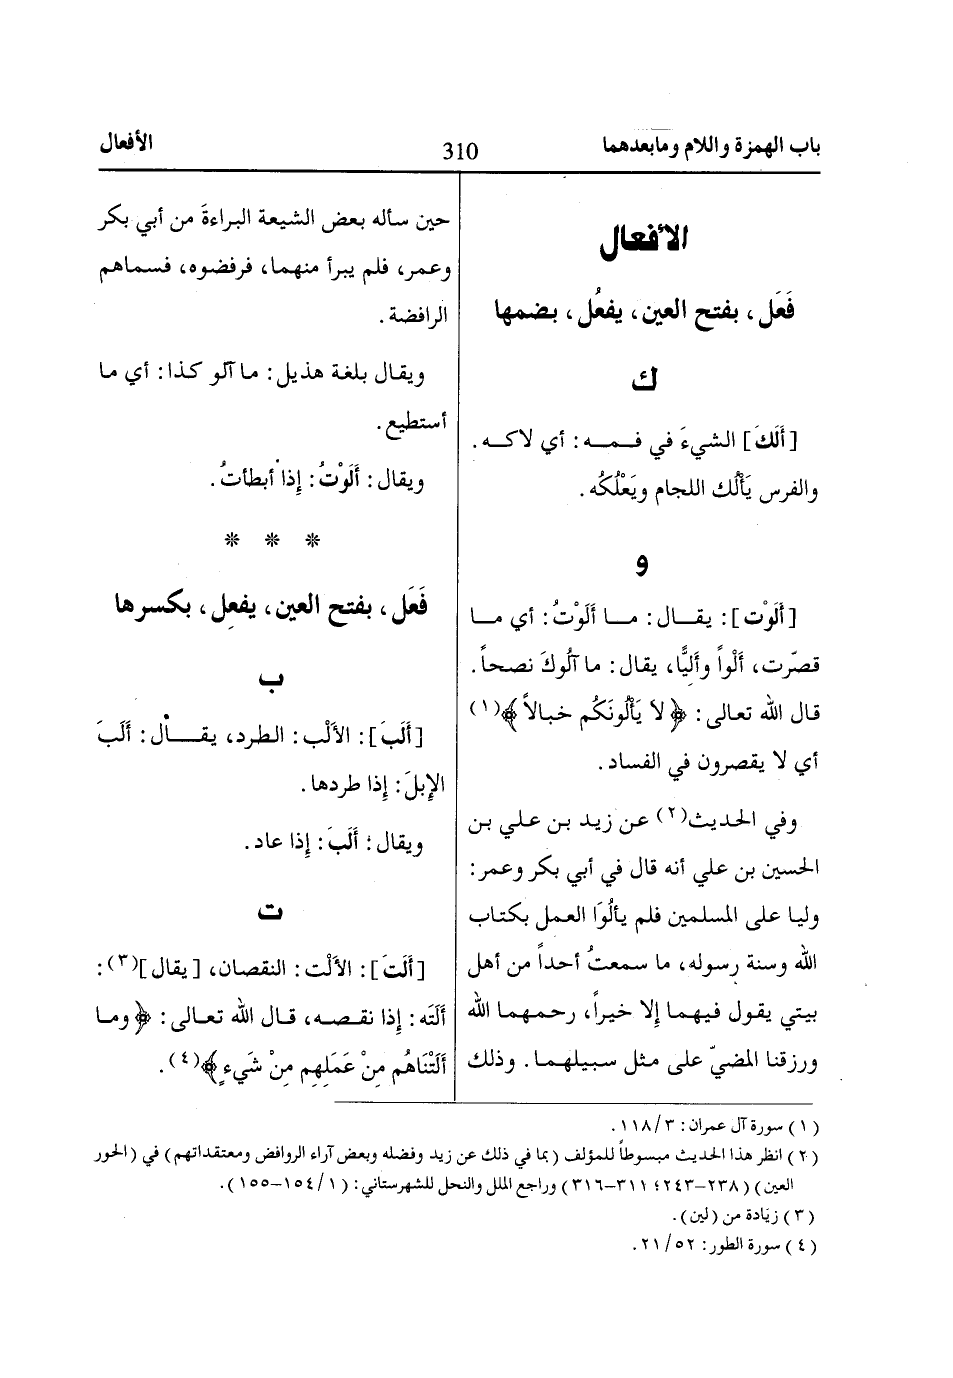 باب الهمزة واللام ومابعدهما
310
الأفعال
الأفعال
فَعَل، بفتح العين، يفعُل، بضمها
ك
[أَلَكَ] الشيءَ في فمه: أي لاكه.
والفرس يَأْلُك اللجام ويَعْلُكُه.
و
[أَلَوْت]: يقال: ما أَلَوْتُ: أي ما
قصّرت، أَلْواً وأُلِيًّا، يقال: ما آلُوكَ نصحاً.
قال الله تعالى: ﴿لا يَأْلُونَكُم خبالاً﴾(١)
أي لا يقصرون في الفساد.
وفي الحديث(٢) عن زيد بن علي بن
الحسين بن علي أنه قال في أبي بكر وعمر:
وليا على المسلمين فلم يألُوَا العمل بكتاب
الله وسنة رسوله، ما سمعتُ أحداً من أهل
بيتي يقول فيهما إلا خيراً، رحمهما الله
ورزقنا المضيّ على مثل سبيلهما. وذلك
حين سأله بعض الشيعة البراءةَ من أبي بكر
وعمر، فلم يبرأ منهما، فرفضوه، فسماهم
الرافضة.
ويقال بلغة هذيل: ما آلو كذا: أي ما
أستطيع.
ويقال: أَلَوْتُ: إذا أبطأتُ.
* * *
فَعَل، بفتح العين، يفعِل، بكسرها
ب
[أَلَبَ]: الأَلْب: الطرد، يقال: أَلَبَ
الإبلَ: إذا طردها.
ويقال: أَلَبَ: إذا عاد.
ت
[أَلَتَ]: الأَلْت: النقصان، [يقال](٣):
أَلَتَه: إذا نقصه، قال الله تعالى: ﴿وما
أَلَتْنَاهُم مِنْ عَمَلِهِم مِنْ شَيءٍ﴾(٤).
(١) سورة آل عمران: ٣/ ١١٨.
(٢) انظر هذا الحديث مبسوطاً للمؤلف (بما في ذلك عن زيد وفضله وبعض آراء الروافض ومعتقداتهم) في (الحور
العين) (٢٣٨-٢٤٣؛ ٣١١-٣١٦) وراجع الملل والنحل للشهرستاني: (١/ ١٥٤-١٥٥).
(٣) زيادة من (لين).
(٤) سورة الطور: ٥٢/ ٢١.